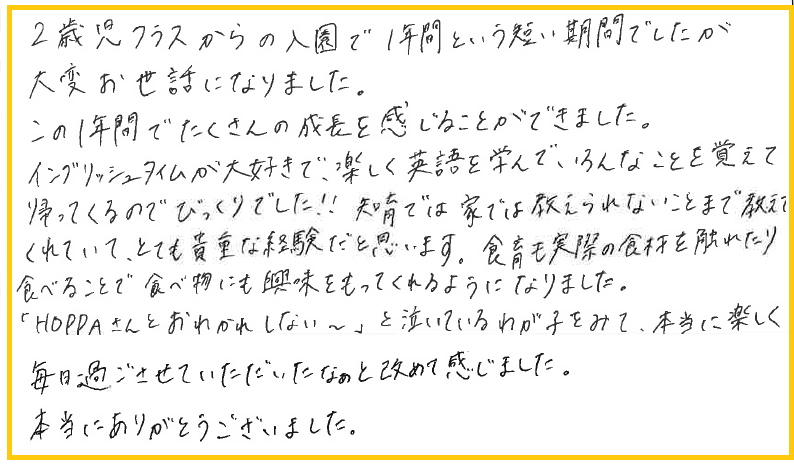 2歳児クラスからの入園で1年間という短い期間でしたが
大変お世話になりました。
この1年間でたくさんの成長を感じることができました。
イングリッシュタイムが大好きで、楽しく英語を学んで、いろんなことを覚えて
帰ってくるのでびっくりでした!! 知育では家では教えられないことまで教えて
くれていて、とても貴重な経験だと思います。食育も実際の食材を触れたり
食べることで食べ物にも興味をもってくれるようになりました。
「HOPPAさんとおわかれしない〜」と泣いているわが子をみて、本当に楽しく
毎日過ごさせていただいたなぁと改めて感じました。
本当にありがとうございました。